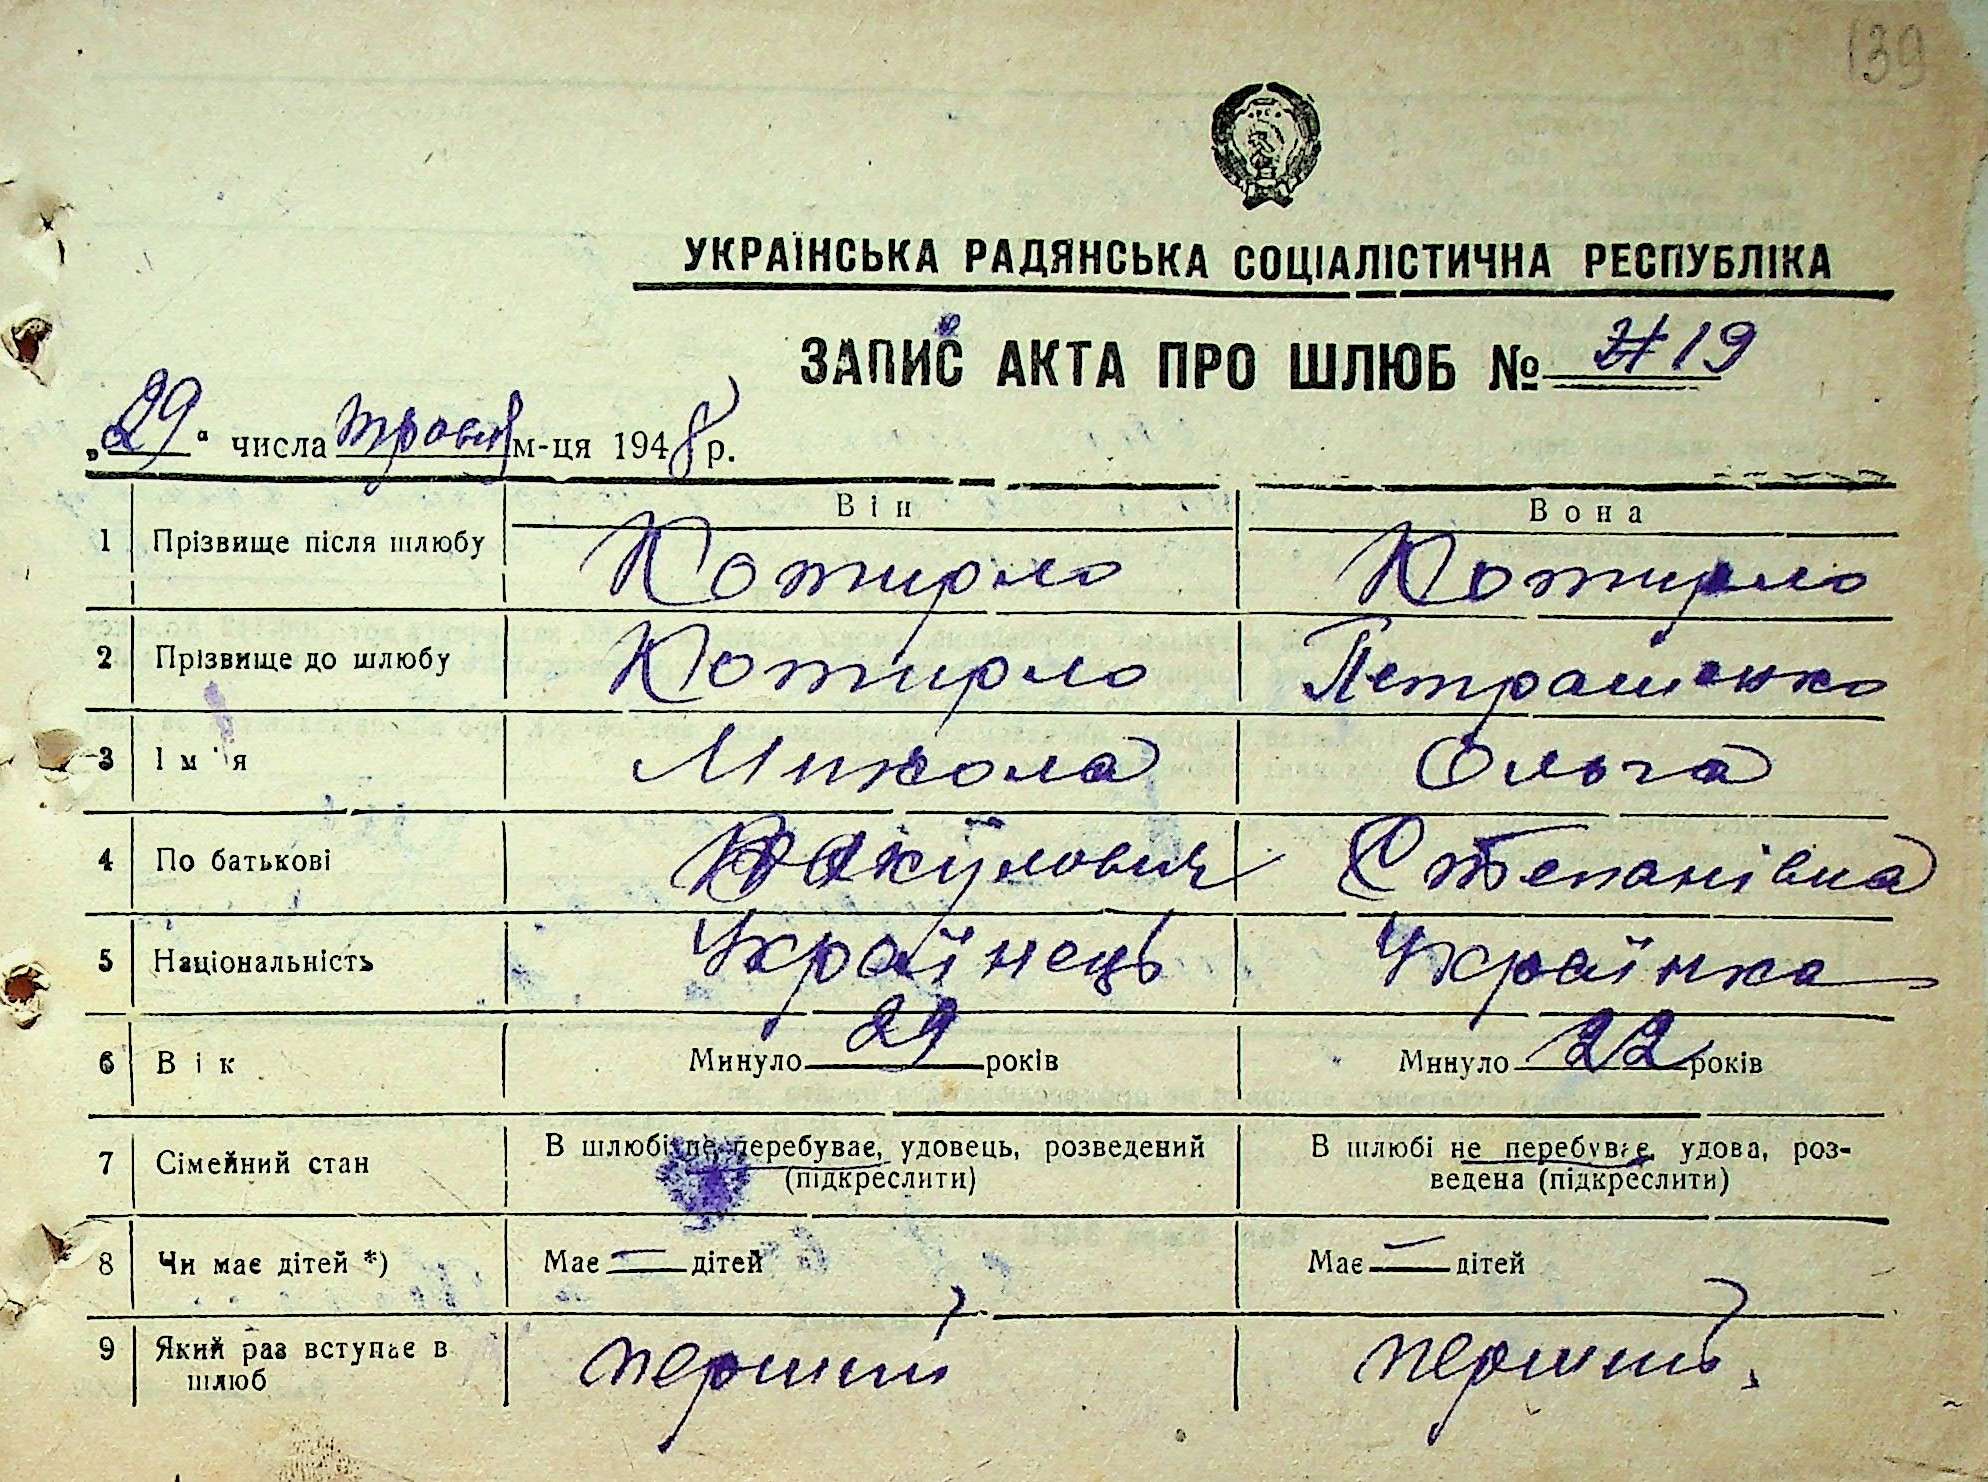 139
УКРАЇНСЬКА РАДЯНСЬКА СОЦІАЛІСТИЧНА РЕСПУБЛІКА
ЗАПИС АКТА ПРО ШЛЮБ № 19
„29“ числа травня м-ця 1948 р.
Він Вона
1 Прізвище після шлюбу Котирло Котирло
2 Прізвище до шлюбу Котирло Петрашенко
3 Ім'я Микола Ольга
4 По батькові Вакулович Степанівна
5 Національність Українець Українка
6 Вік Минуло 29 років Минуло 22 років
7 Сімейний стан В шлюбі не перебуває, удовець, розведений В шлюбі не перебуває, удова, роз-
(підкреслити) ведена (підкреслити)
8 Чи має дітей *) Має — дітей Має — дітей
9 Який раз вступає в перший перший
шлюб